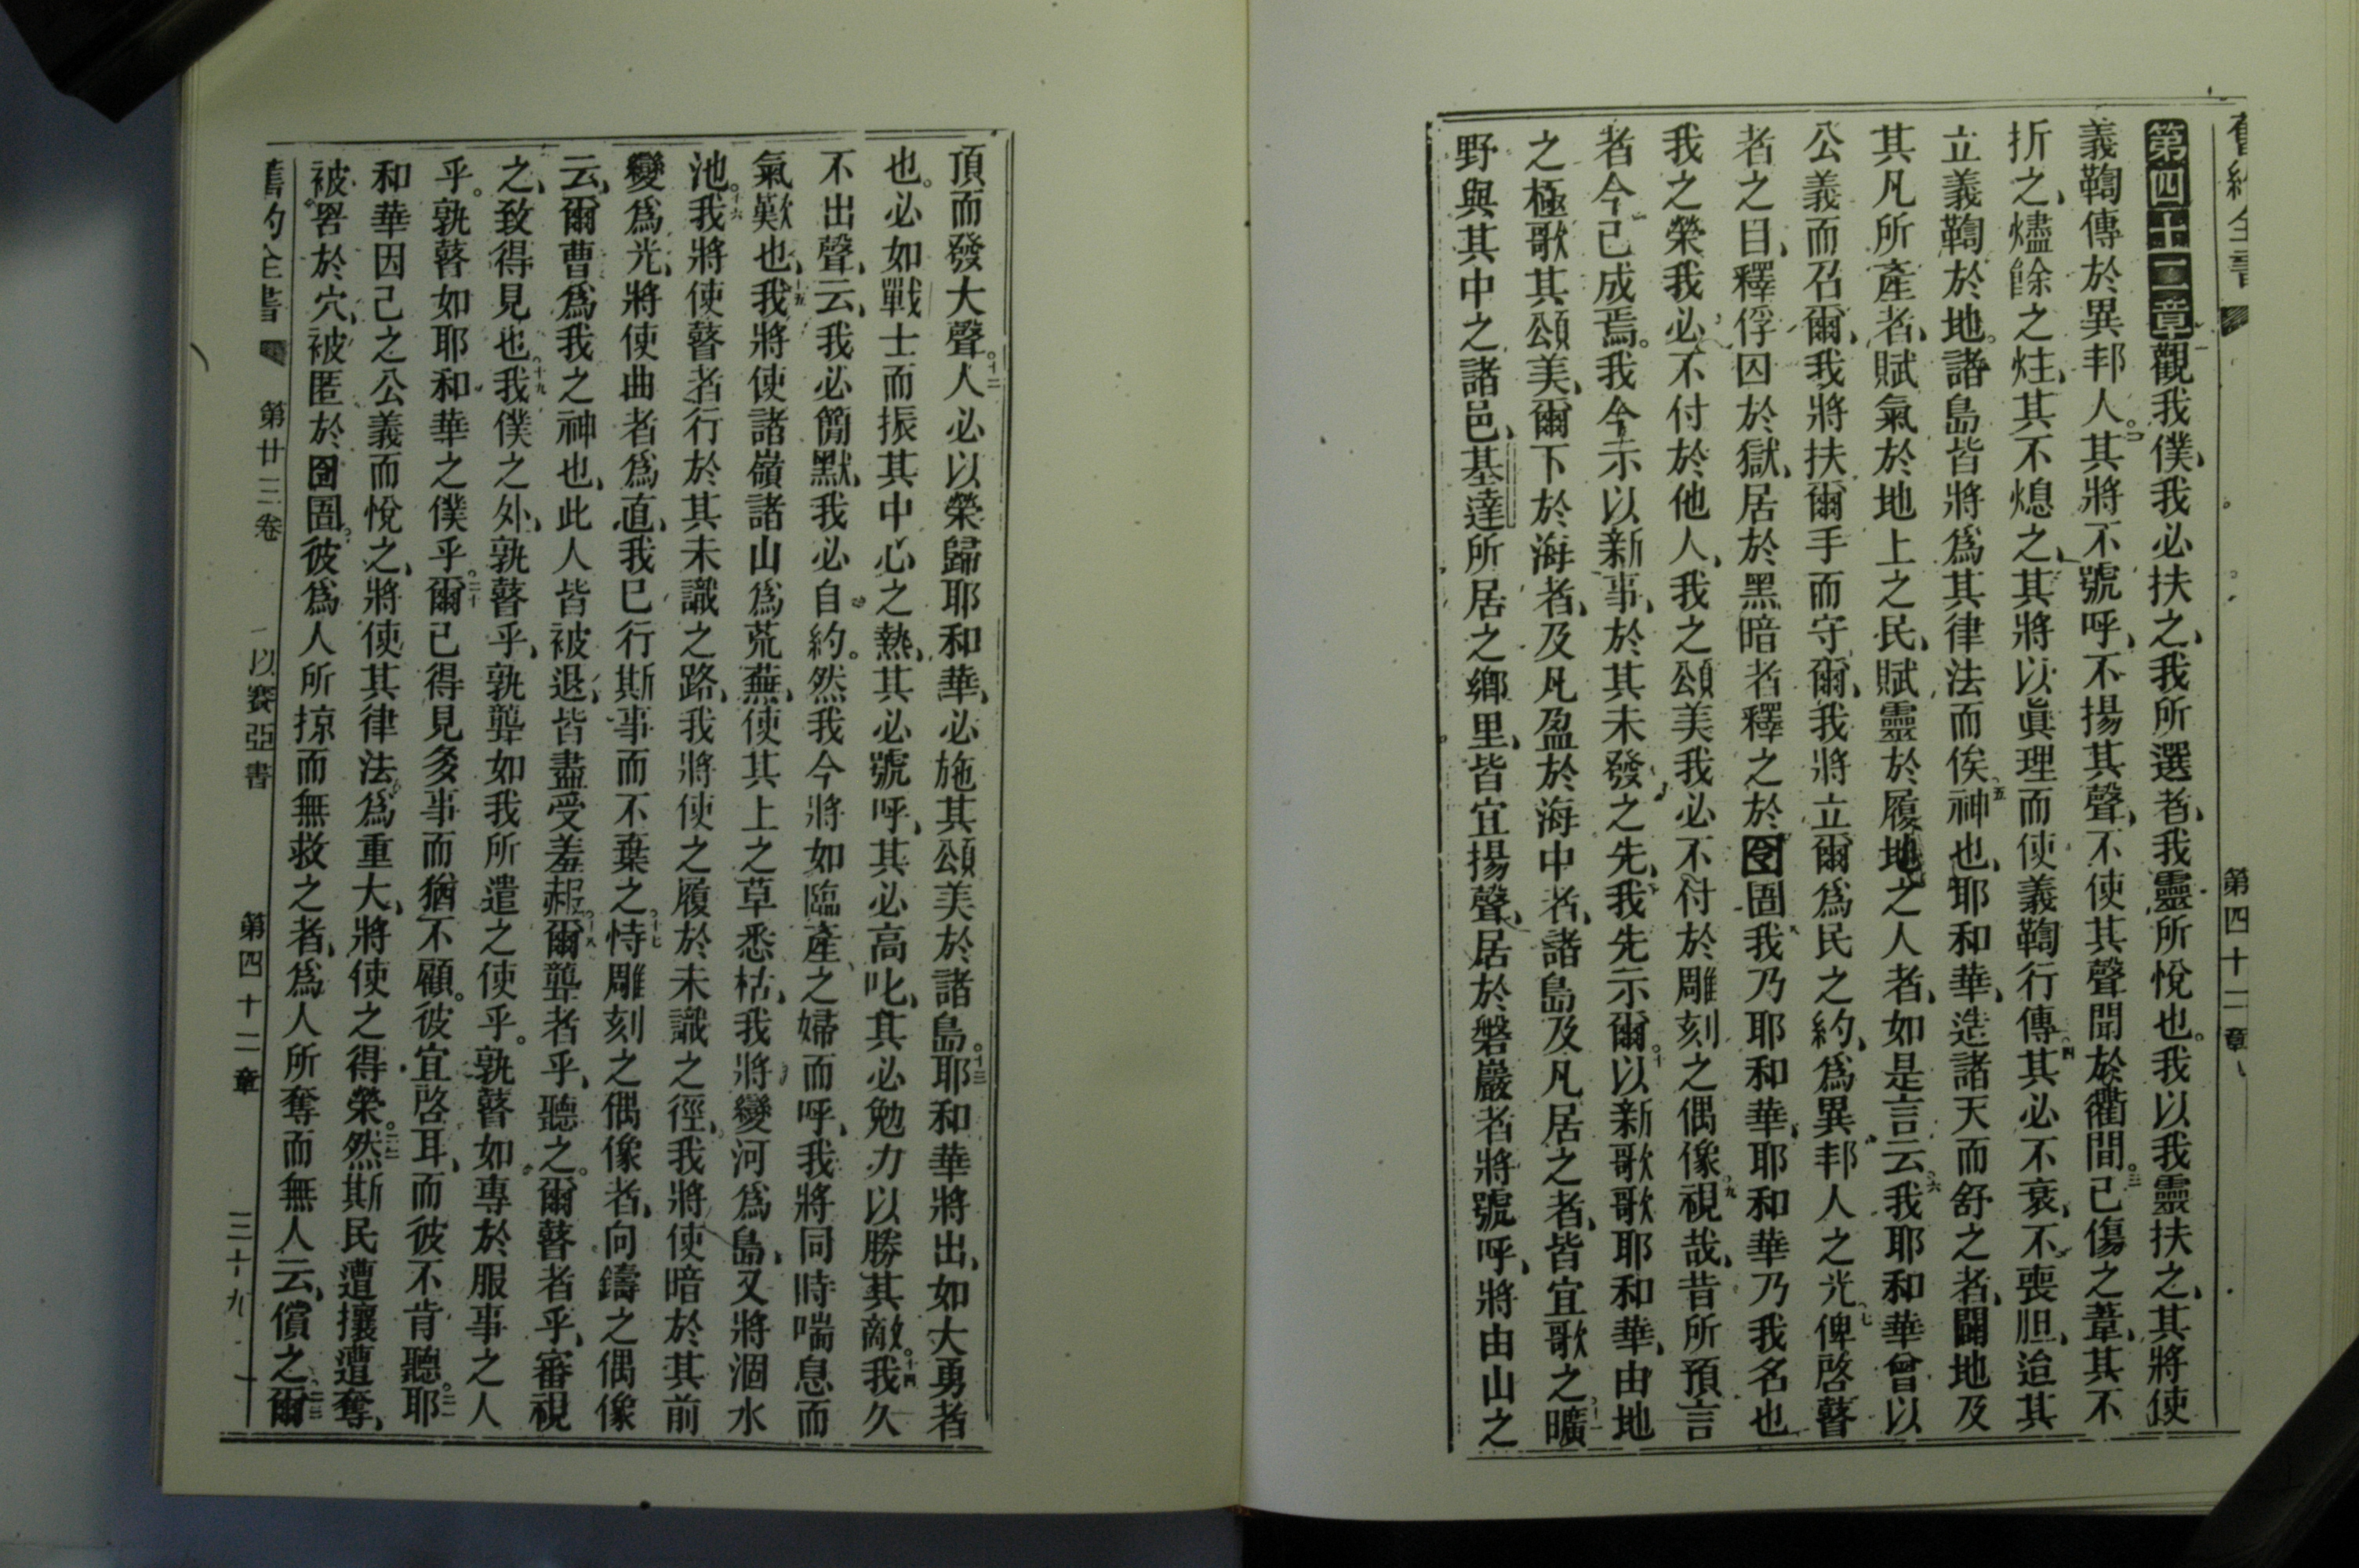 舊約全書 第四十二章
第四十二章觀我僕、我必扶之、我所選者、我靈所悅也。我以我靈扶之、其將使
義鞫傳於異邦人。二其將不號呼、不揚其聲、不使其聲聞於衢間。三已傷之葦、其不
折之、燼餘之炷、其不熄之、其將以眞理而使義鞫行傳。四其必不衰、不喪胆、迨其
立義鞫於地。諸島皆將爲其律法而俟。五神也、耶和華、造諸天而舒之者、闢地及
其凡所產者、賦氣於地上之民、賦靈於履地之人者、如是言云、六我耶和華曾以
公義而召爾、我將扶爾手而守爾、我將立爾爲民之約、爲異邦人之光、七俾啓瞽
者之目、釋俘囚於獄、居於黑暗者釋之於囹圄。八我乃耶和華、耶和華乃我名也
我之榮我必不付於他人、我之頌美我必不付於雕刻之偶像。九視哉、昔所預言
者今已成焉。我今示以新事、於其未發之先、我先示爾。十以新歌歌耶和華、由地
之極歌其頌美、爾下於海者、及凡盈於海中者、諸島及凡居之者、皆宜歌之。十一曠
野與其中之諸邑、基達所居之鄉里、皆宜揚聲、居於磐巖者將號呼、將由山之
頂而發大聲。十二人必以榮歸耶和華、必施其頌美於諸島。十三耶和華將出、如大勇者
也。必如戰士而振其中心之熱、其必號呼、其必高叱、其必勉力以勝其敵。十四我久
不出聲、云、我必簡默、我必自約。然我今將如臨產之婦而呼、我將同時喘息而
氣歎也、十五我將使諸嶺諸山爲荒蕪、使其上之草悉枯、我將變河爲島、又將涸水
池。十六我將使瞽者行於其未識之路、我將使之履於未識之徑、我將使暗於其前
變爲光、將使曲者爲直、我已行斯事而不棄之。十七恃雕刻之偶像者、向鑄之偶像
云、爾曹爲我之神也、此人皆被退、皆盡受羞赧。十八爾聾者乎、聽之。爾瞽者乎、審視
之、致得見也。十九我僕之外、孰瞽乎、孰聾如我所遣之使乎。孰瞽如專於服事之人
乎。孰瞽如耶和華之僕乎。二十爾已得見多事而猶不顧。彼宜啓耳、而彼不肯聽。二一耶
和華因己之公義而悅之、將使其律法爲重大、將使之得榮。二二然斯民遭攘遭奪、
被罟於穴、被匿於囹圄。彼爲人所掠而無救之者、爲人所奪而無人云、償之。二三爾
舊約全書 第廿三卷 以賽亞書 第四十二章 三十九